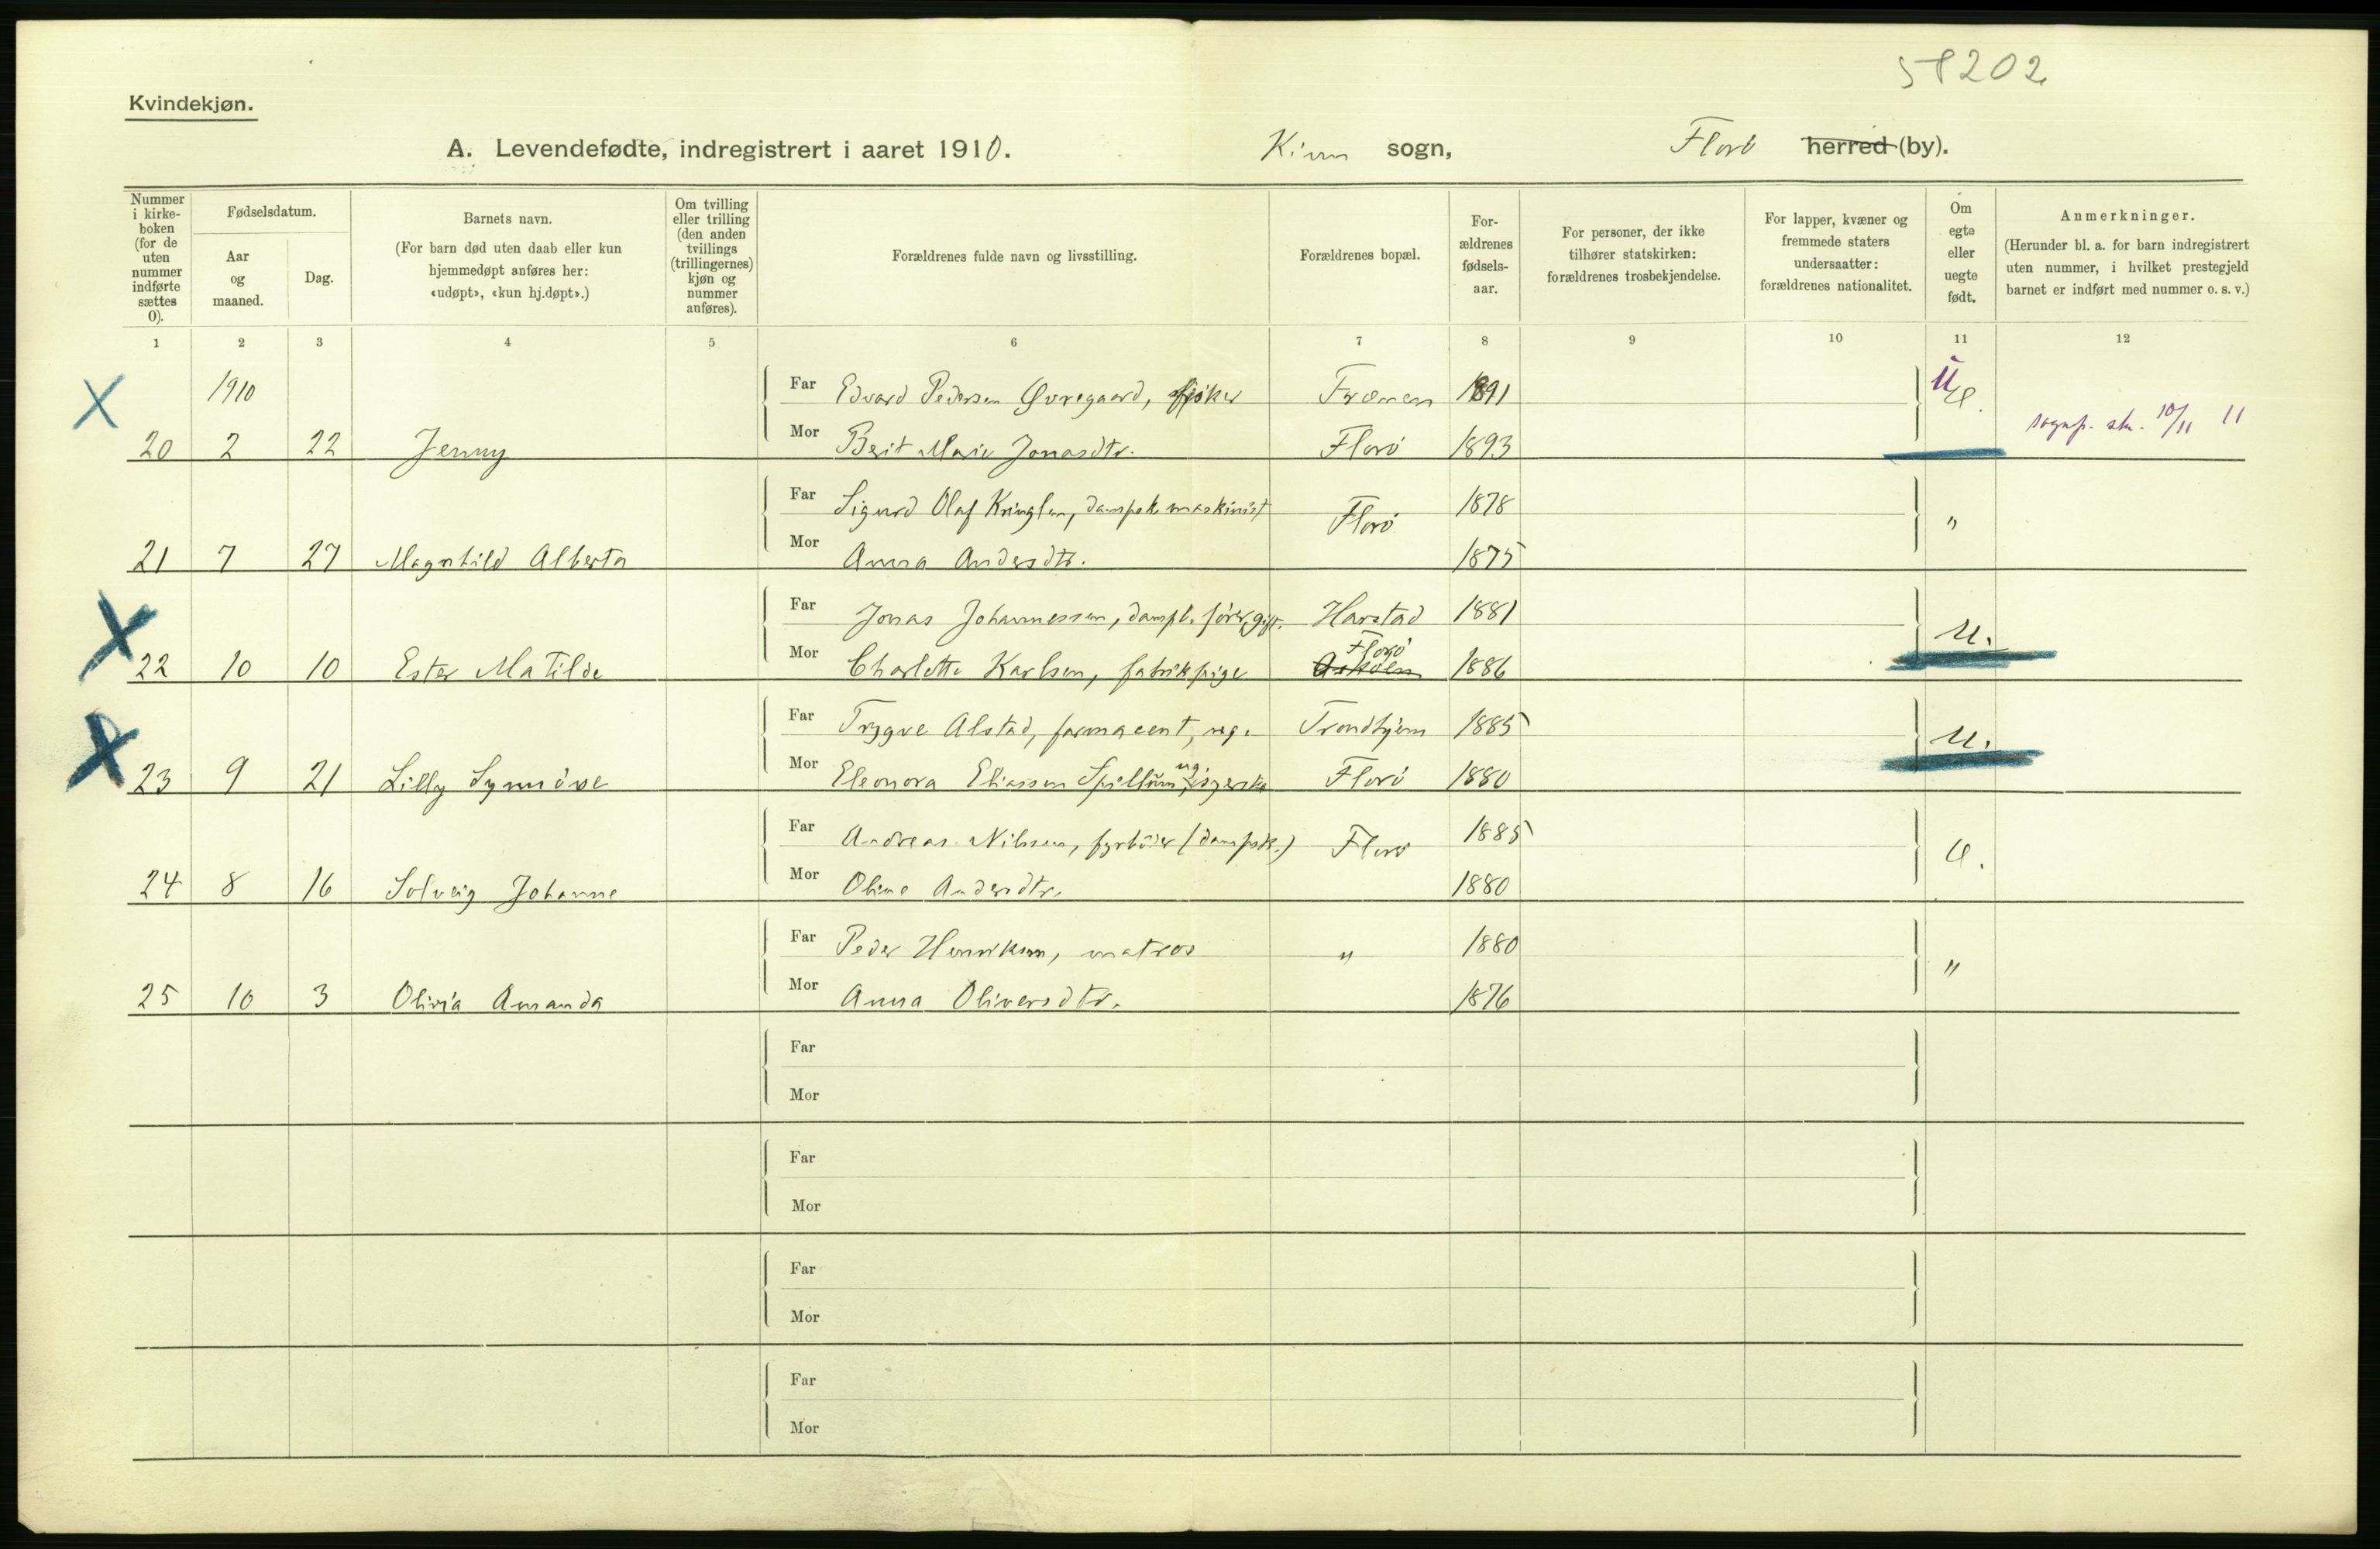 58202
Kvindekjøn.
A. Levendefødte, indregistrert i aaret 1910. Kinn sogn, Florö herred (by).
Nummer i kirke-boken (for de uten nummer indførte sættes 0).
Fødselsdatum.
Aar og maaned.
Dag.
Barnets navn.
(For barn død uten daab eller kun hjemmedøpt anføres her: «udøpt», «kun hj.døpt».)
Om tvilling eller trilling (den anden tvillings (trillingernes) kjøn og nummer anføres).
Forældrenes fulde navn og livsstilling.
Forældrenes bopæl.
For-ældrenes fødsels-aar.
For personer, der ikke tilhører statskirken: forældrenes trosbekjendelse.
For lapper, kvæner og fremmede staters undersaatter: forældrenes nationalitet.
Om egte eller uegte født.
Anmerkninger.
(Herunder bl. a. for barn indregistrert uten nummer, i hvilket prestegjeld barnet er indført med nummer o. s. v.)
1 2 3 4 5 6 7 8 9 10 11 12
1910 Far Edvard Pedersen Øvregaard, fisker 1891 U e.
X 20 2 22 Jenny Mor Berit Marie Jonasdtr. Florö 1893 sognp. skr. 10/11 11
Far Sigurd Olaf Kringlen, dampsk. maskinist Florö 1878 "
21 7 27 Magnhild Alberta Mor Anna Andersdtr. 1875
Far Jonas Johannessen, dampb. förer, gift. Harstad 1881 U.
X 22 10 10 Ester Matilde Mor Charlotte Karlsen, fabrikpige Florö 1886
Far Trygve Alstad, farmacent, ug. Trondhjem 1885 U.
X 23 9 21 Lilly Synnöve Mor Eleonora Eliassen Spillum, ug. syerske Florö 1880
Far Andreas Nilssen, fyrböder (dampsk.) Florö 1885 e.
24 8 16 Solveig Johanne Mor Oline Andersdtr. 1880
Far Peder Henriksen, matros " 1880 "
25 10 3 Olivia Amanda Mor Anna Oliversdtr. 1876
Far
Mor
Far
Mor
Far
Mor
Far
Mor